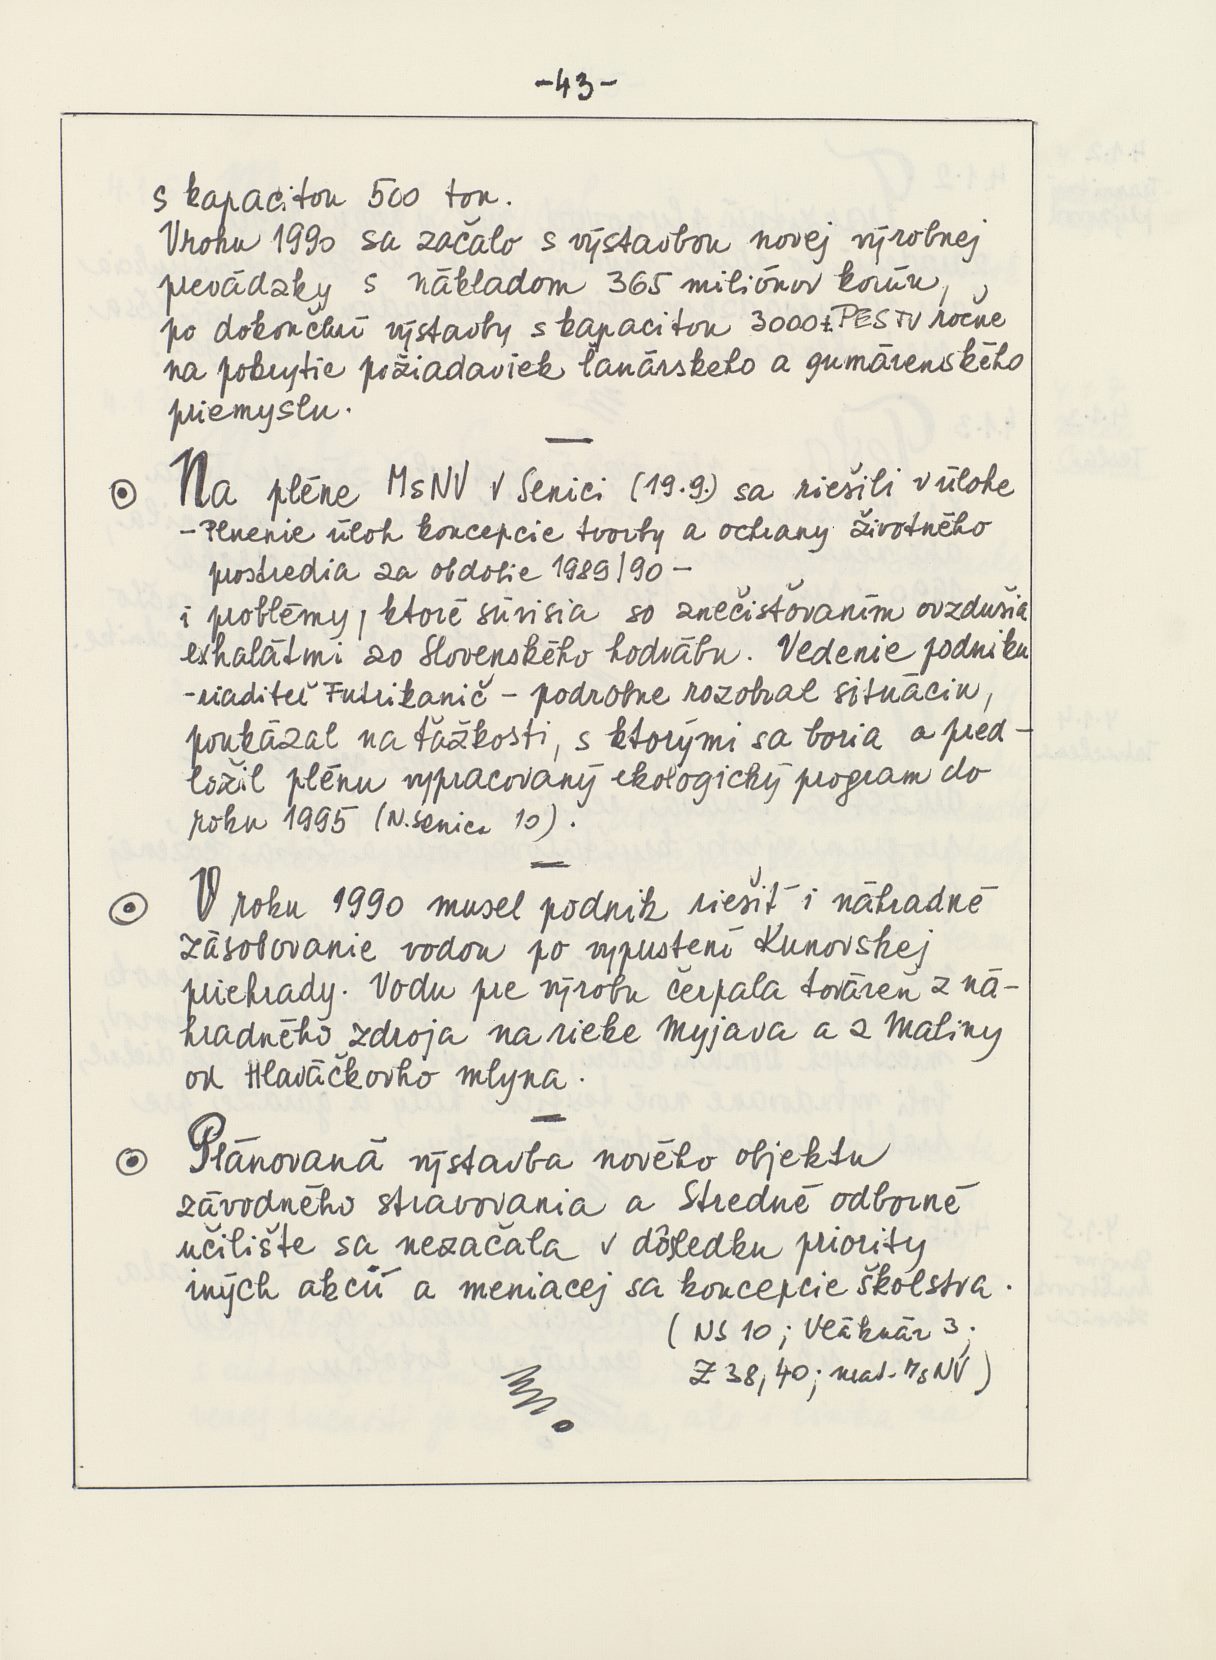 -43-
s kapacitou 500 ton.
V roku 1990 sa začalo s výstavbou novej výrobnej
prevádzky s nákladom 365 miliónov korún,
po dokončení výstavby s kapacitou 3000 t PES TV ročne
na pokrytie požiadaviek lanárskeho a gumárenského
priemyslu.
Na pléne MsNV v Senici (19.9.) sa riešili v úlohe
- Plnenie úloh koncepcie tvorby a ochrany životného
prostredia za obdobie 1989/90 -
i problémy, ktoré súvisia so znečisťovaním ovzdušia
exhalátmi zo Slovenského hodvábu. Vedenie podniku
- riaditeľ Futrikanič - podrobne rozobral situáciu,
poukázal na ťažkosti, s ktorými sa boria a pred-
ložil plénu vypracovaný ekologický program do
roku 1995 (N. Senica 10).
V roku 1990 musel podnik riešiť i náhradné
zásobovanie vodou po vypustení Kunovskej
priehrady. Vodu pre výrobu čerpala továreň z ná-
hradného zdroja na rieke Myjava a z Maliny
od Hlaváčkovho mlyna.
Plánovaná výstavba nového objektu
závodného stravovania a Stredné odborné
učilište sa nezačala v dôsledku priority
iných akcií a meniacej sa koncepcie školstva.
(NS 10; Vláknár 3;
Z 38, 40; mat. MsNV)